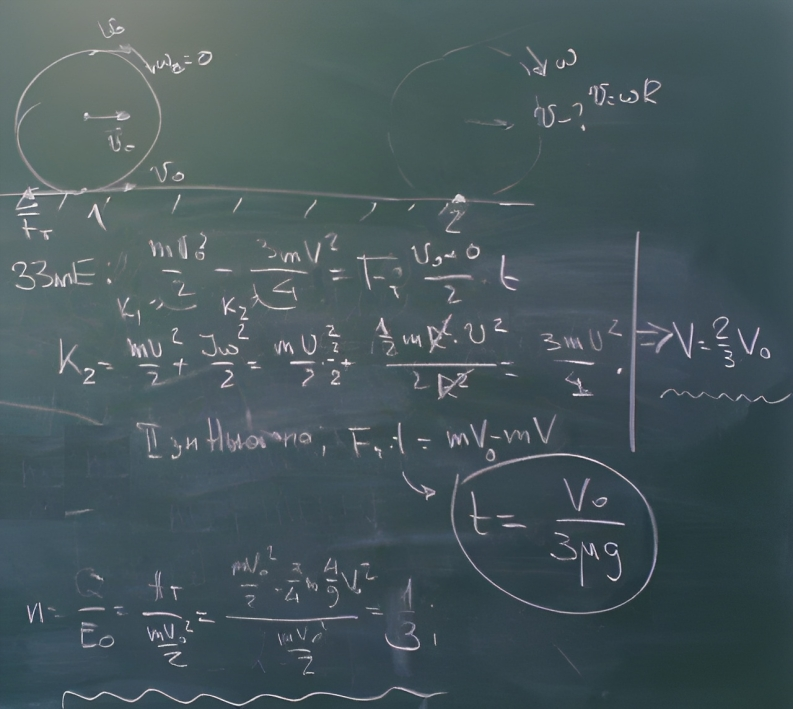 v₀
ω₀=0
ω
v̄₀
v-? v=ωR
v₀
F_т 1 2
ЗЗМЕ: mv₀²/2 - 3mV²/4 = F_т (v₀-0)/2 · t
K₁ K₂
K₂ = mv²/2 + Jω²/2 = mv²/2 + (1/2 mR² · v²)/(2R²) = 3mv²/4 . ⇒ V = 2/3 V₀
II зн Ньютона; F_т · t = mV₀ - mV
t = V₀/(3μg)
n = Q/E₀ = A_т/(mv₀²/2) = (mv₀²/2 - 3/4 m 4/9 V₀²)/(mv₀²/2) = 1/3 ;